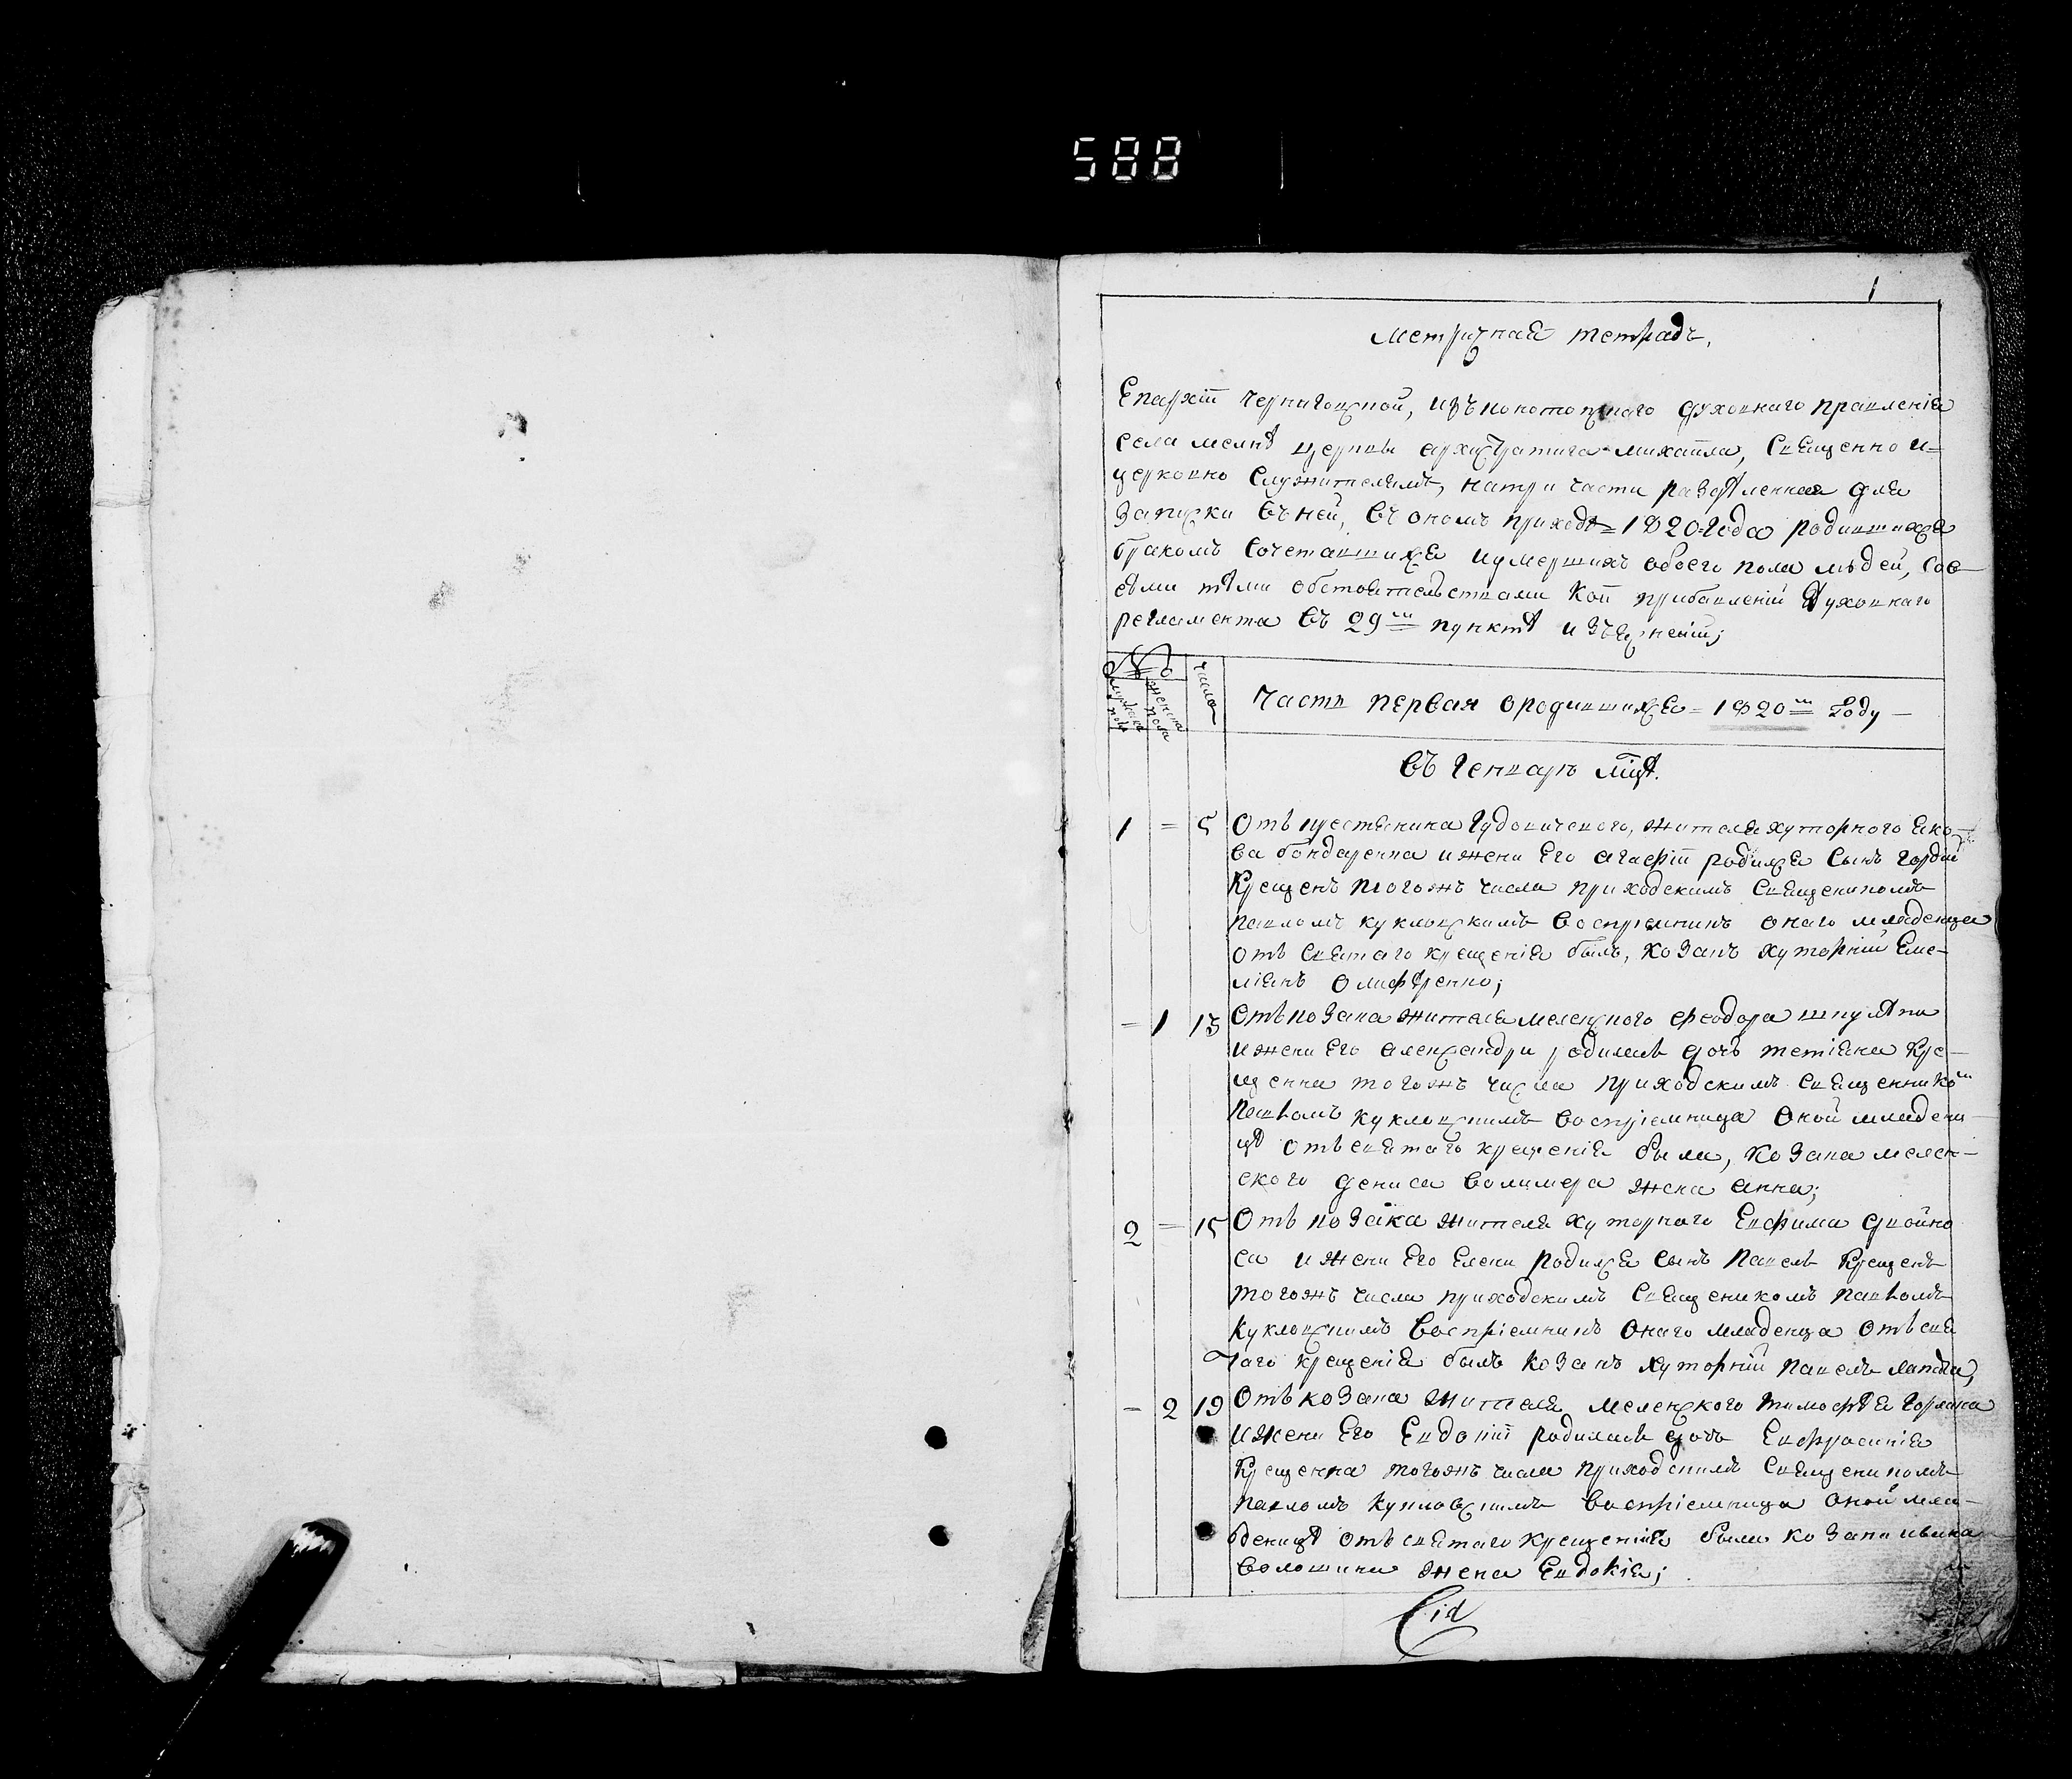 588
1
Метричная тетрадь,
Епархіи черниговской, изъ конотопскаго духовнаго правленія
села мелнѣ церкви архистратига михаила, Священно и=
церковно Служителямъ, натри части раздѣленная для
Записки въ ней, въ ономъ приходѣ = 1820 года родившихся
бракомъ Сочетавшихся иумершихъ обоего пола людей, Сов
сѣми тѣми обстоятельствами Кои прибавленій Духовнаго
регламента въ 29м пунктѣ
№
мужеска пола
женска пола
число
Часть первая ородившихся = 1820м Году —
въ Генварѣ мцѣ.
1 = 5 Отъ жителя хуторного Яко-
ва бондаренка ижени Его агафіи родился Сынъ гордій
Крещенъ тогожъ числа приходскимъ Священикомъ
павломъ кукловскимъ воспріемникъ онаго младенца
отъ Святаго крещенія былъ, козакъ хуторній Еме-
ліянъ Олифѣренко;
= 1 13 Отъ козака жителя меленского феодора
ижени Его александри родилась дочь тетіяна Кре-
щенна тогожъ числа приходскимъ Священникомъ
павломъ кукловскимъ воспріемница Оной младени-
цѣ отъ святаго крещенія была, козака мелен-
ского дениса жена анна;
2 = 15 Отъ козака жителя хуторного Евфима двойно
са ижени Его Елени родился Сынъ павелъ Крещенъ
тогожъ числа приходскимъ Священикомъ павломъ
кукловскимъ Воспріемникъ Онаго младенца отъ свя
таго крещенія былъ козакъ хуторній павелъ лапа;
= 2 19 Отъ козака жителя меленского тимофѣя
ижени Его Евдокіи родилась дочь Евфросинія
Крещенна тогожъ числа приходскимъ Священикомъ
павломъ кукловскимъ воспріемница оной мла-
деницѣ отъ святаго крещенія была козака ивана
волошина жена Евдокія;